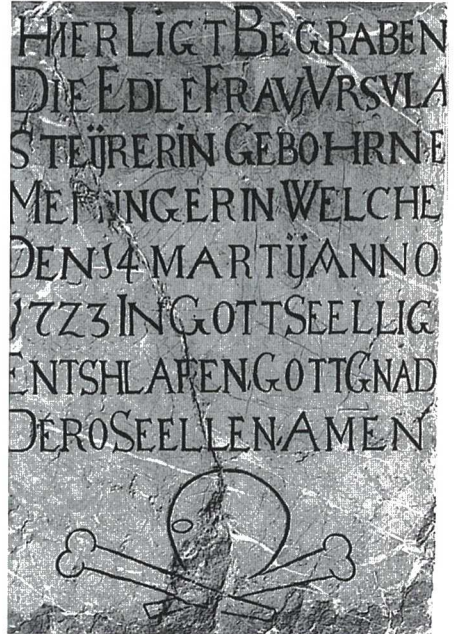 HIER LIGT BEGRABEN
DIE EDLE FRAV VRSVLA
STEIJRERIN GEBOHRNE
WELCHE
DEN 14 MARTIJ ANNO
1723 IN GOTT SEELLIG
ENTSHLAFEN, GOTT GNAD
DERO SEELLEN, AMEN